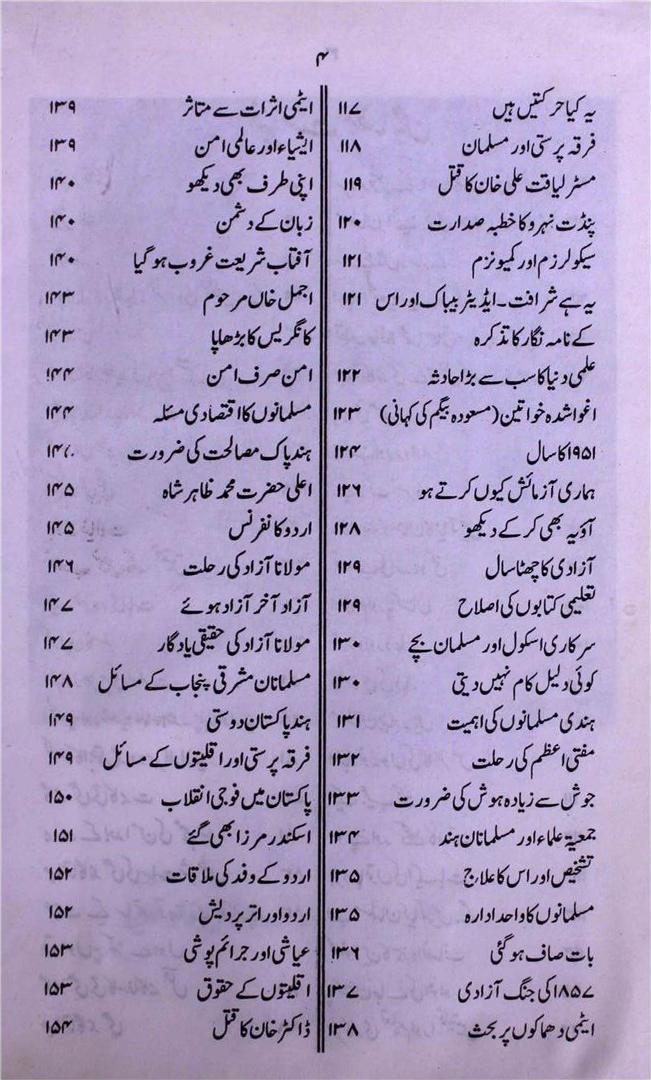 ۴
یہ کیا حرکتیں ہیں ۱۱۷
فرقہ پرستی اور مسلمان ۱۱۸
مسٹر لیاقت علی خان کا قتل ۱۱۹
پنڈت نہرو کا خطبہ صدارت ۱۲۰
سیکولرزم اور کمیونزم ۱۲۱
یہ ہے شرافت۔ ایڈیٹر بیباک اور اس ۱۲۱
کے نامہ نگار کا تذکرہ
علمی دنیا کا سب سے بڑا حادثہ ۱۲۲
اغوا شدہ خواتین (مسعودہ بیگم کی کہانی) ۱۲۳
۱۹۵۱ کا سال ۱۲۴
ہماری آزمائش کیوں کرتے ہو ۱۲۶
آؤ یہ بھی کر کے دیکھو ۱۲۸
آزادی کا چھٹا سال ۱۲۹
تعلیمی کتابوں کی اصلاح ۱۲۹
سرکاری اسکول اور مسلمان بچے ۱۳۰
کوئی دلیل کام نہیں دیتی ۱۳۰
ہندی مسلمانوں کی اہمیت ۱۳۱
مفتی اعظم کی رحلت ۱۳۲
جوش سے زیادہ ہوش کی ضرورت ۱۳۳
جمعیۃ علماء اور مسلمانان ہند ۱۳۴
تشخیص اور اس کا علاج ۱۳۵
مسلمانوں کا واحد ادارہ ۱۳۵
بات صاف ہو گئی ۱۳۶
۱۸۵۷ کی جنگ آزادی ۱۳۷
ایٹمی دھماکوں پر بحث ۱۳۸
ایٹمی اثرات سے متاثر ۱۳۹
ایشیاء اور عالمی امن ۱۳۹
اپنی طرف بھی دیکھو ۱۴۰
زبان کے دشمن ۱۴۰
آفتاب شریعت غروب ہو گیا ۱۴۰
اجمل خاں مرحوم ۱۴۳
کانگریس کا بڑھاپا ۱۴۳
امن صرف امن ۱۴۴
مسلمانوں کا اقتصادی مسئلہ ۱۴۴
ہندپاک مصالحت کی ضرورت
اعلی حضرت محمد ظاہر شاہ ۱۴۵
اردو کانفرنس ۱۴۵
مولانا آزاد کی رحلت ۱۴۶
آزاد آخر آزاد ہوئے ۱۴۷
مولانا آزاد کی حقیقی یادگار ۱۴۷
مسلمانان مشرقی پنجاب کے مسائل ۱۴۸
ہندپاکستان دوستی ۱۴۹
فرقہ پرستی اور اقلیتوں کے مسائل ۱۴۹
پاکستان میں فوجی انقلاب ۱۵۰
اسکندر مرزا بھی گئے ۱۵۱
اردو کے وفد کی ملاقات ۱۵۲
اردو اور اتر پردیش ۱۵۲
عیاشی اور جرائم پوشی ۱۵۳
اقلیتوں کے حقوق ۱۵۳
ڈاکٹر خان کا قتل ۱۵۴